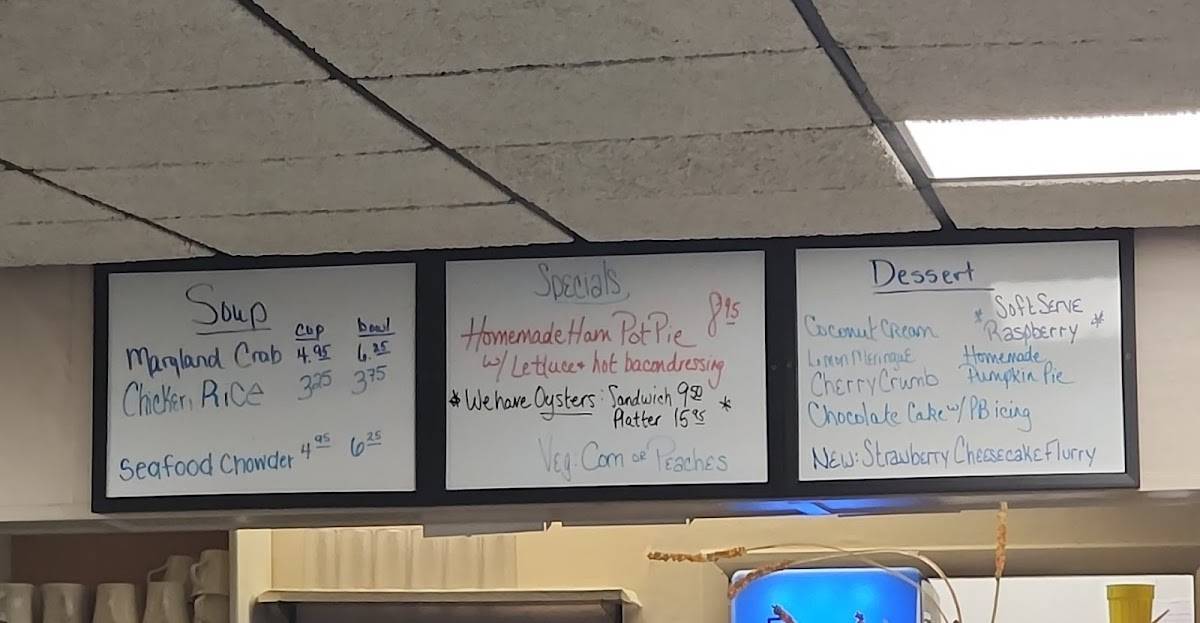 Soup
cup bowl
Maryland Crab 4.95 6.25
Chicken, Rice 3.25 3.75
Seafood Chowder 4.95 6.25
Specials
Homemade Ham Pot Pie 8.95
w/ Lettuce + hot bacon dressing
* We have Oysters: Sandwich 9.50
Platter 15.95 *
Veg: Corn or Peaches
Dessert
* Soft Serve
Raspberry *
Coconut Cream
Lemon Meringue
Homemade
Pumpkin Pie
Cherry Crumb
Chocolate Cake w/ PB icing
New: Strawberry Cheesecake Flurry